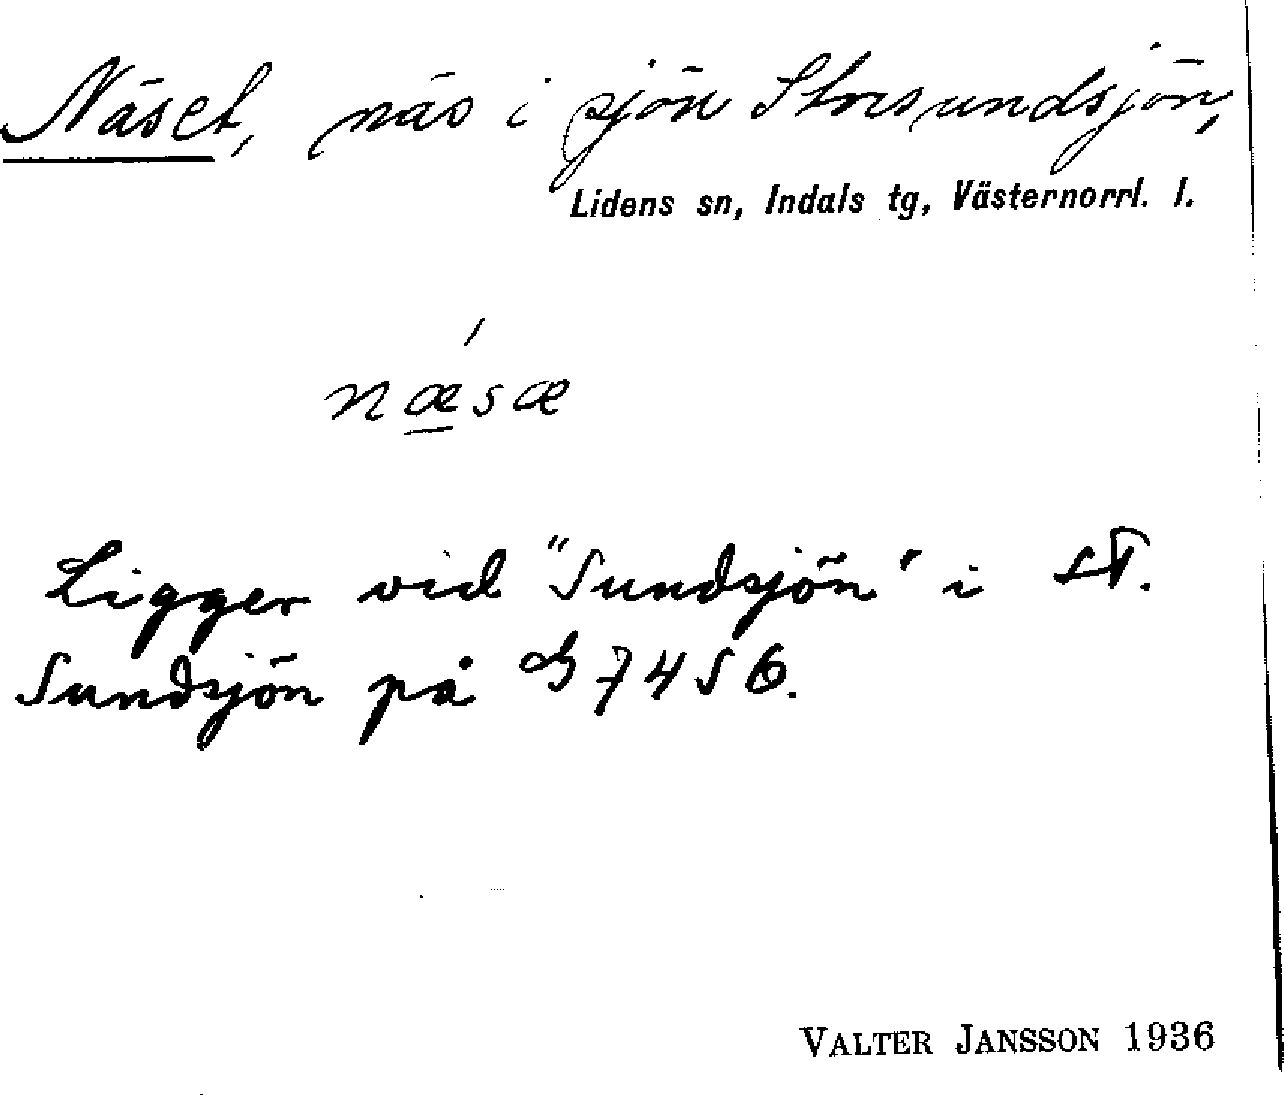 Näset, näs i sjön Storsundsjön,
Lidens sn, Indals tg, Västernorrl. l.
nǽsæ
Ligger vid "Sundsjön" i St.
Sundsjön på G 7456.
VALTER JANSSON 1936